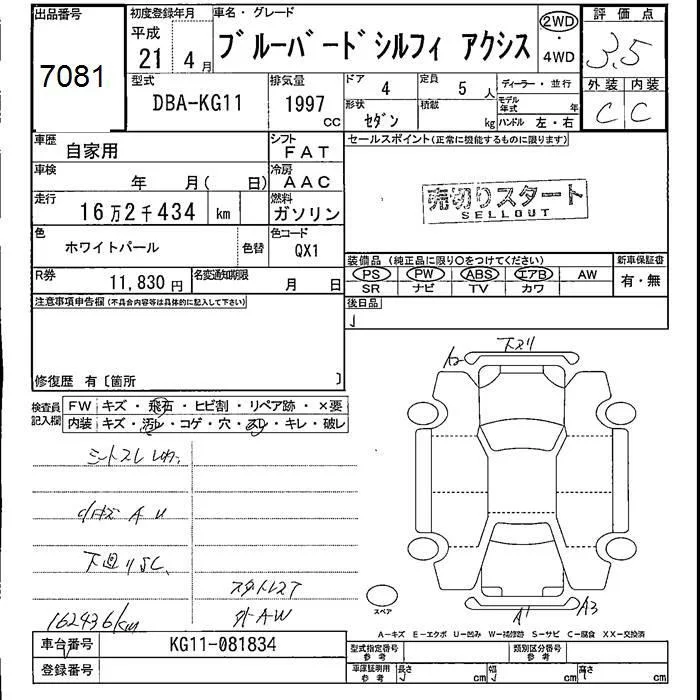 出品番号
7081
初度登録年月
平成
21 4月
車名・グレード
ブルーバードシルフィ アクシス
2WD
・
4WD
評価点
3.5
外装 内装
C C
型式
DBA-KG11
排気量
1997
cc
ドア
4
定員
5人
形状
セダン
積載
kg
ディーラー・並行
モデル年式 年
ハンドル 左・右
車歴
自家用
シフト
FAT
車検
年 月( 日)
冷房
AAC
走行
16万2千434 km
燃料
ガソリン
色
ホワイトパール
色替
色コード
QX1
R券
11,830円
名変通知期限
月 日
セールスポイント(正常に機能するものに限ります)
売切りスタート
SELLOUT
装備品(純正品に限り○をつけてください)
PS PW ABS エアB AW
SR ナビ TV カワ
新車保証書
有・無
後日品
注意事項申告欄(不具合内容等は具体的に記入して下さい)
修復歴 有〔箇所 〕
検査員
記入欄
FW キズ・飛石・ヒビ割・リペア跡・×要
内装 キズ・汚レ・コゲ・穴・スレ・キレ・破レ
シートスレ
小キズ A U
下廻りSC
スタットレスT
外-AW
162436km
下スリ
A2
A1
A3
スペア
A−キズ E−エクボ U−凹み W−補修跡 S−サビ C−腐食 XX−交換済
車台番号
KG11-081834
登録番号
型式指定番号
参考
類別区分番号
参考
車庫証明用
参考
長さ cm
幅 cm
高さ cm